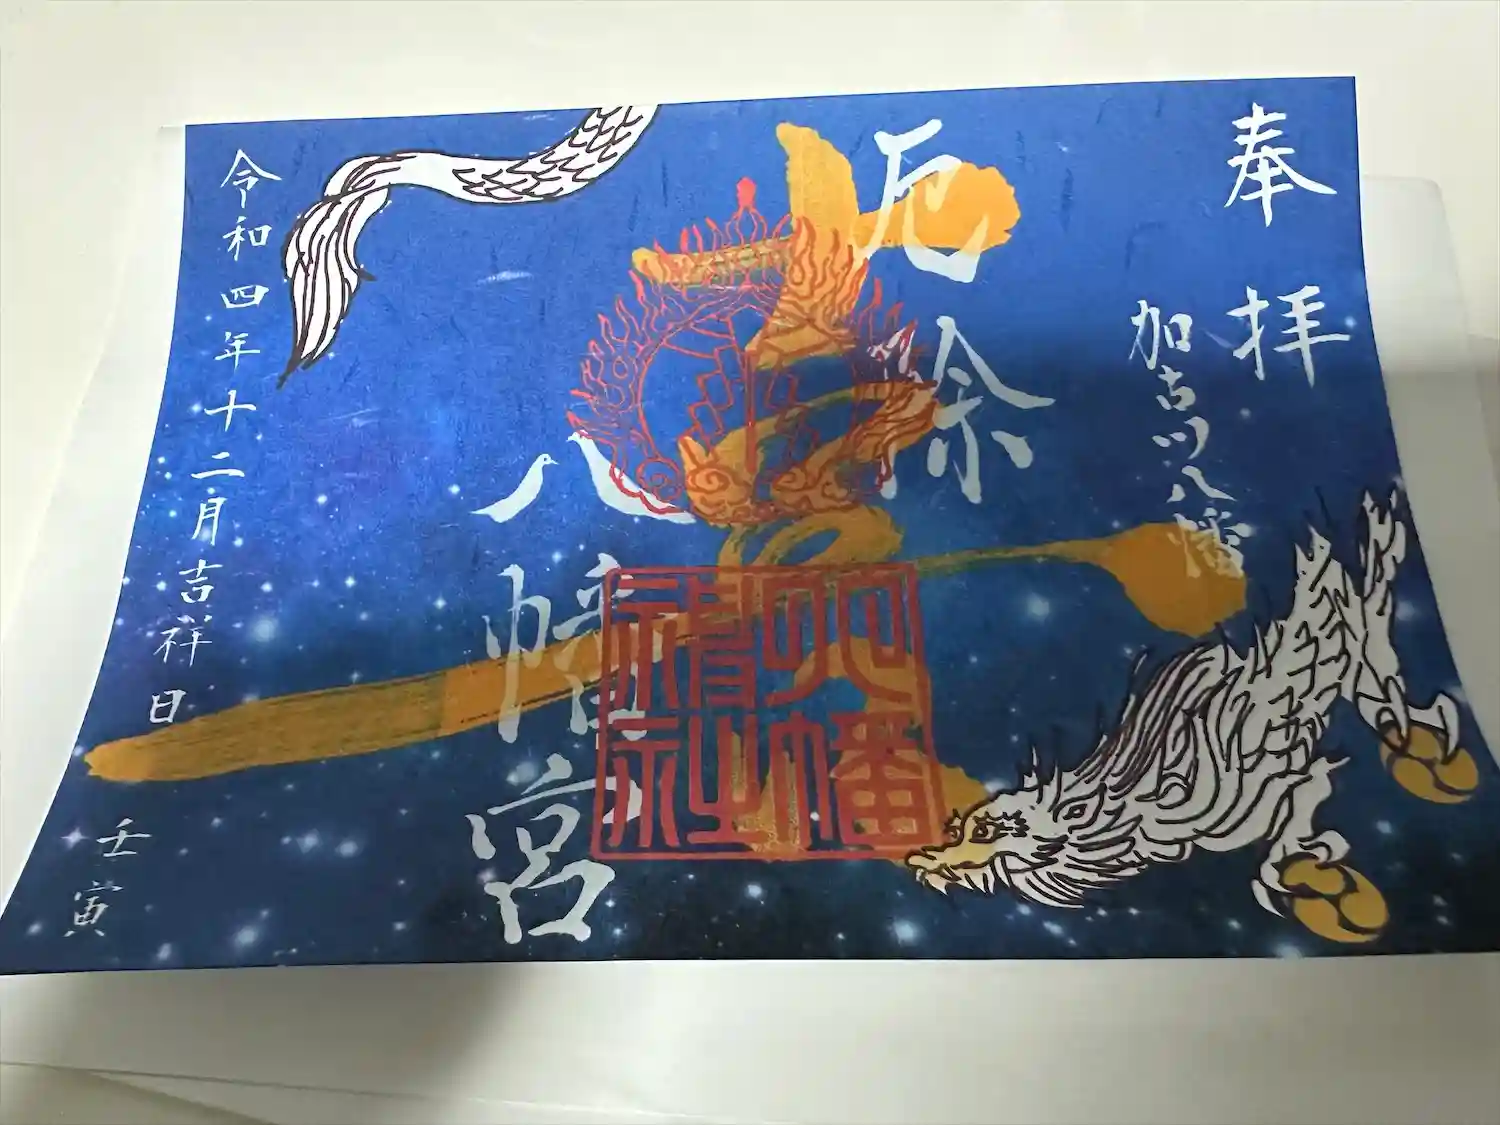 奉拝
加古川八幡
厄除
八幡宮
八幡
神社
令和四年十二月吉祥日
壬寅